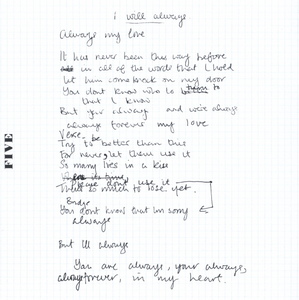 i will always
Always my love
It has never been this way before
in all of the words that I hold
let him come break on my door
You dont know who to turn to
that I know
But your always and we're always
always forever my love
Verse
Try to be better than this
For never, let them use it
So many lies in a kiss
Please dont use it
There's so much to lose yet.
Bridge
You dont know that im sorry
always
But Ill always
You are always, your always,
always forever, in my heart.
FIVE